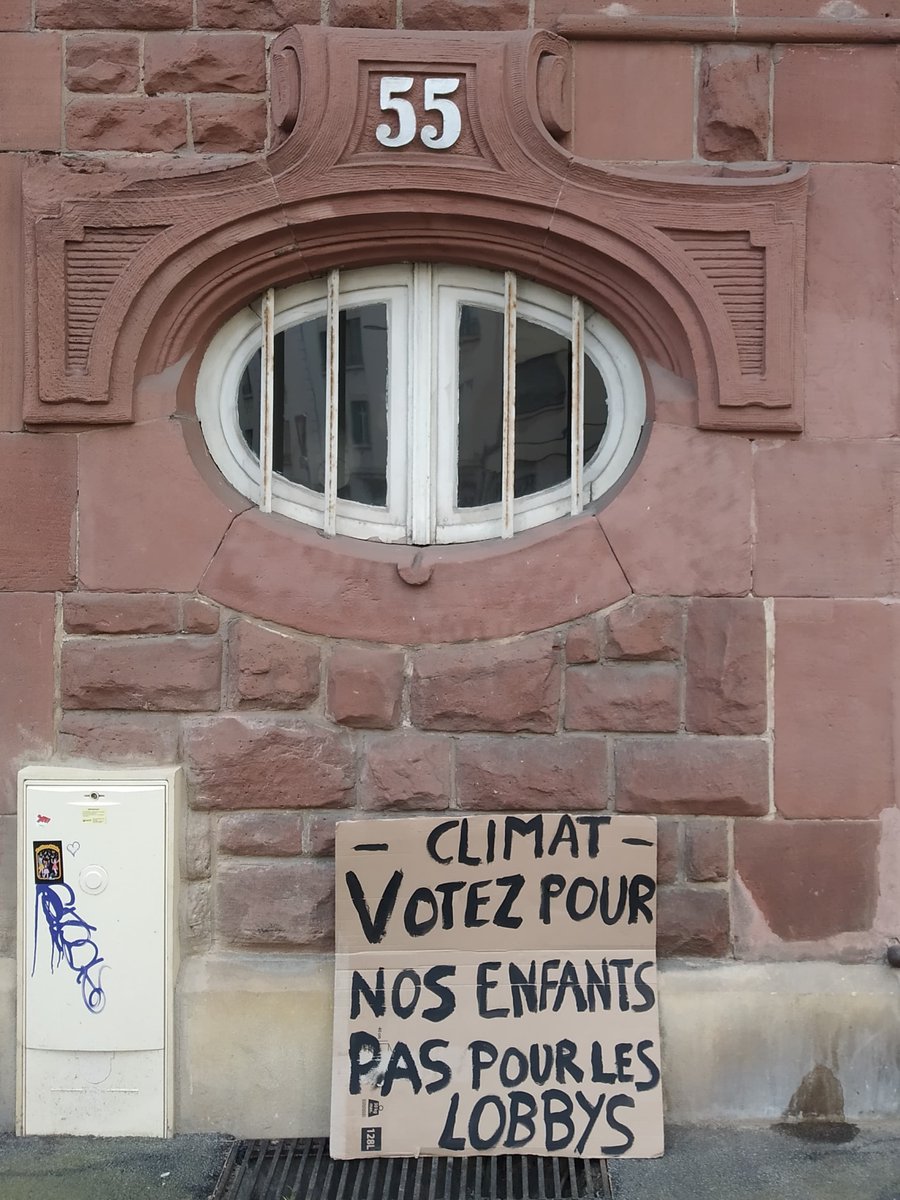 55
— CLIMAT —
VOTEZ POUR
NOS ENFANTS
PAS POUR LES
LOBBYS
128L